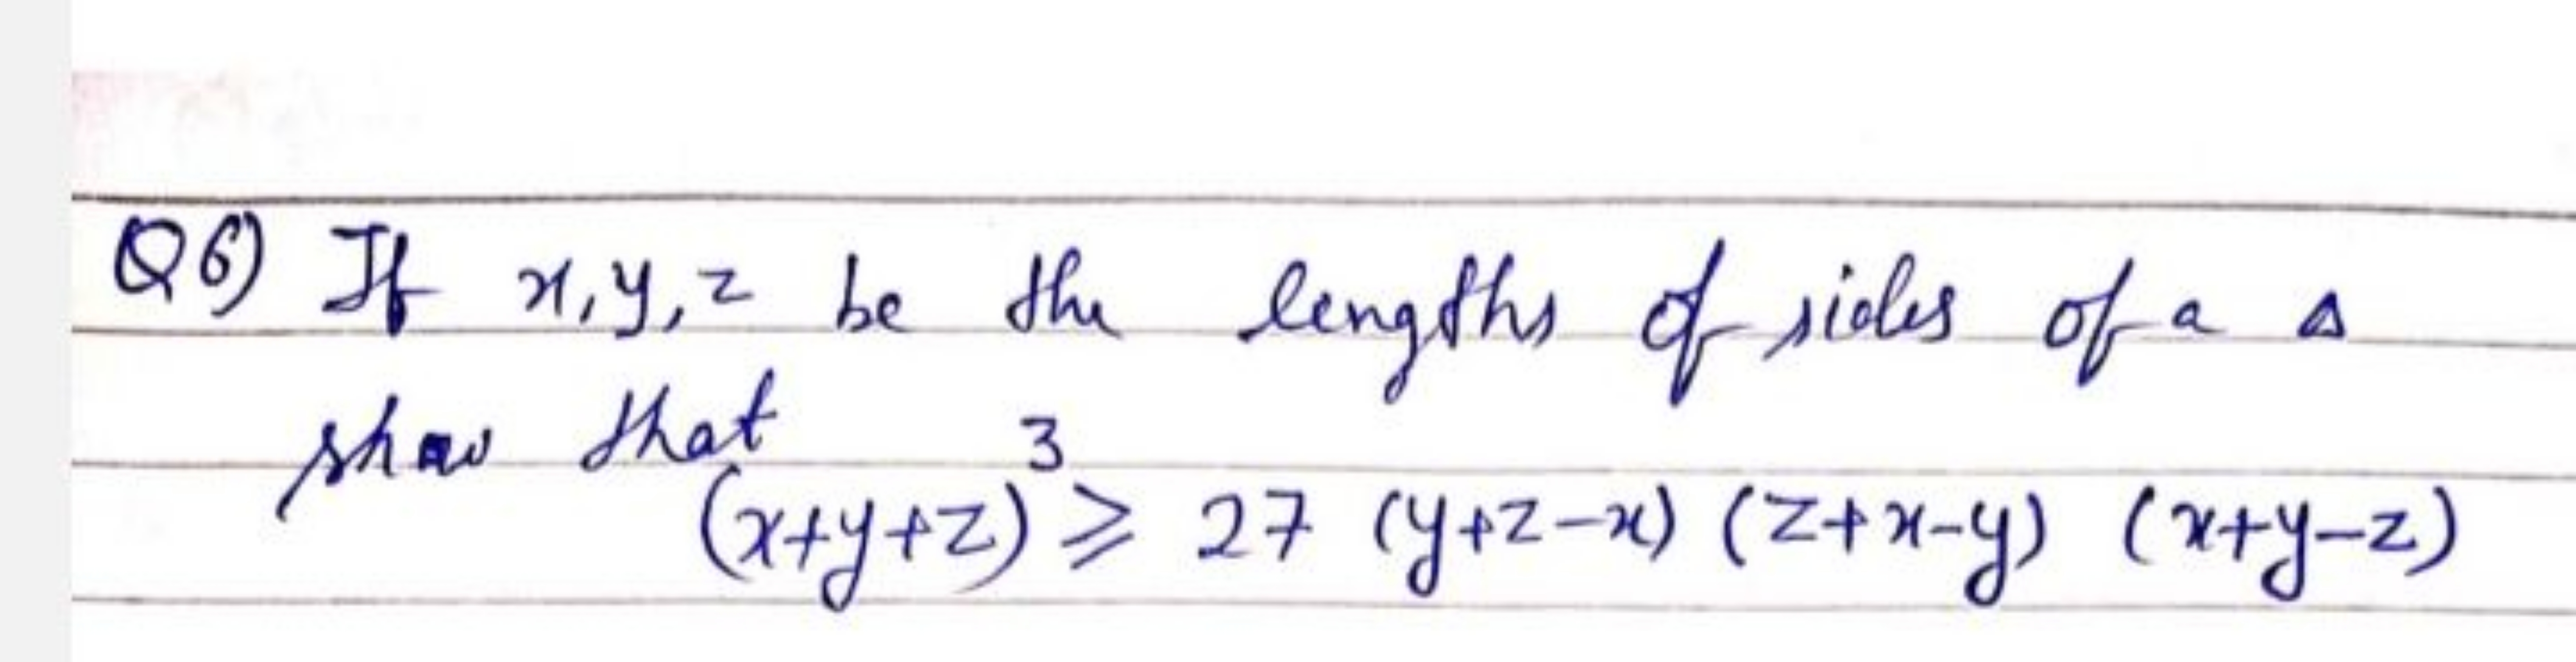 Q6) If x, y, z be the lengths of sides of a Δ
show that
(x+y+z)³ ≥ 27 (y+z-x) (z+x-y) (x+y-z)